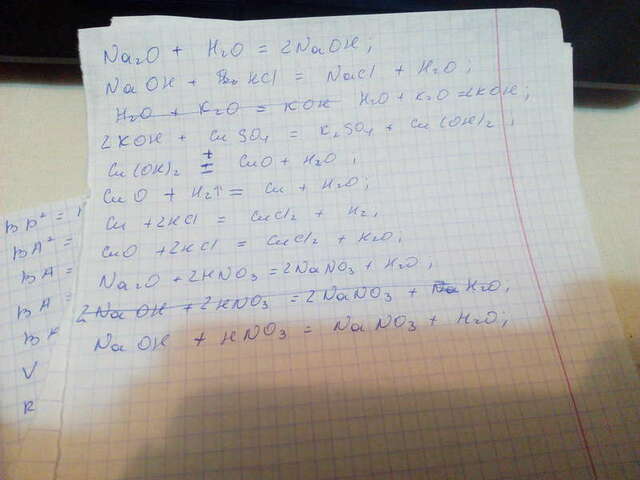 Na₂O + H₂O = 2NaOH;
NaOH + HCl = NaCl + H₂O;
H₂O + K₂O = KOH H₂O + K₂O = 2KOH;
2KOH + CuSO₄ = K₂SO₄ + Cu(OH)₂;
Cu(OH)₂ t= CuO + H₂O;
CuO + H₂↑ = Cu + H₂O;
Cu + 2HCl = CuCl₂ + H₂;
CuO + 2HCl = CuCl₂ + H₂O;
Na₂O + 2HNO₃ = 2NaNO₃ + H₂O;
2NaOH + 2HNO₃ = 2NaNO₃ + H₂O;
NaOH + HNO₃ = NaNO₃ + H₂O;
BD² =
BA² =
BA =
BA =
V
R